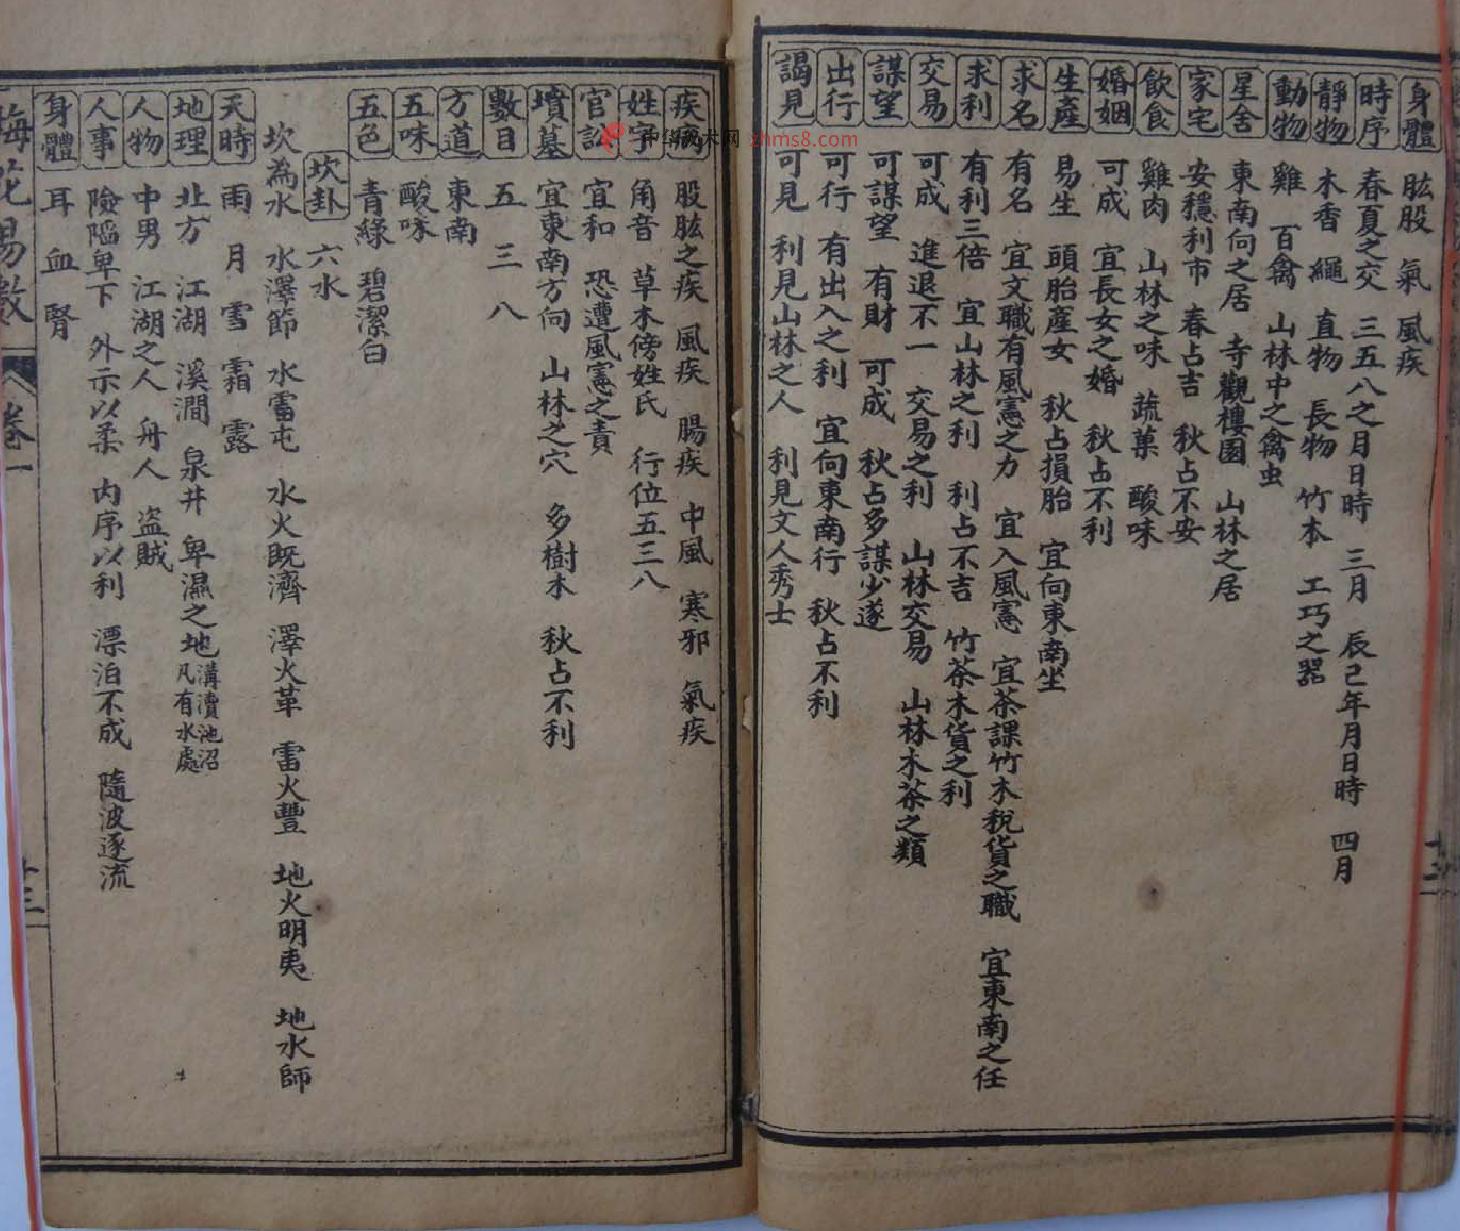 身體 肱股 氣 風疾
時序 春夏之交 三五八之月日時 三月 辰巳年月日時 四月
靜物 木香 繩 直物 長物 竹木 工巧之器
動物 雞 百禽 山林中之禽虫
星舍 東南向之居 寺觀樓園 山林之居
家宅 安穩利市 春占吉 秋占不安
飲食 雞肉 山林之味 蔬菓 酸味
婚姻 可成 宜長女之婚 秋占不利
生產 易生 頭胎產女 秋占損胎 宜向東南坐
求名 有名 宜文職有風憲之力 宜入風憲 宜茶課竹木稅貨之職 宜東南之任
求利 有利三倍 宜山林之利 利占不吉 竹茶木貨之利
交易 可成 進退不一 交易之利 山林交易 山林木茶之類
謀望 可謀望 有財 可成 秋占多謀少遂
出行 可行 有出入之利 宜向東南行 秋占不利
謁見 可見 利見山林之人 利見文人秀士
疾病 股肱之疾 風疾 腸疾 中風 寒邪 氣疾
姓字 角音 草木傍姓氏 行位五三八
官訟 宜和 恐遭風憲之責
墳墓 宜東南方向 山林之穴 多樹木 秋占不利
數目 五 三 八
方道 東南
五味 酸味
五色 青綠 碧潔白
坎卦 六水
坎為水 水澤節 水雷屯 水火既濟 澤火革 雷火豐 地火明夷 地水師
天時 雨 月 雪 霜 露
地理 北方 江湖 溪澗 泉井 卑濕之地 溝瀆池沼 凡有水處
人物 中男 江湖之人 舟人 盜賊
人事 險陷卑下 外示以柔 內序以利 漂泊不成 隨波逐流
身體 耳 血 腎
梅花易數 卷一 十三
中华秘术网 zhms8.com